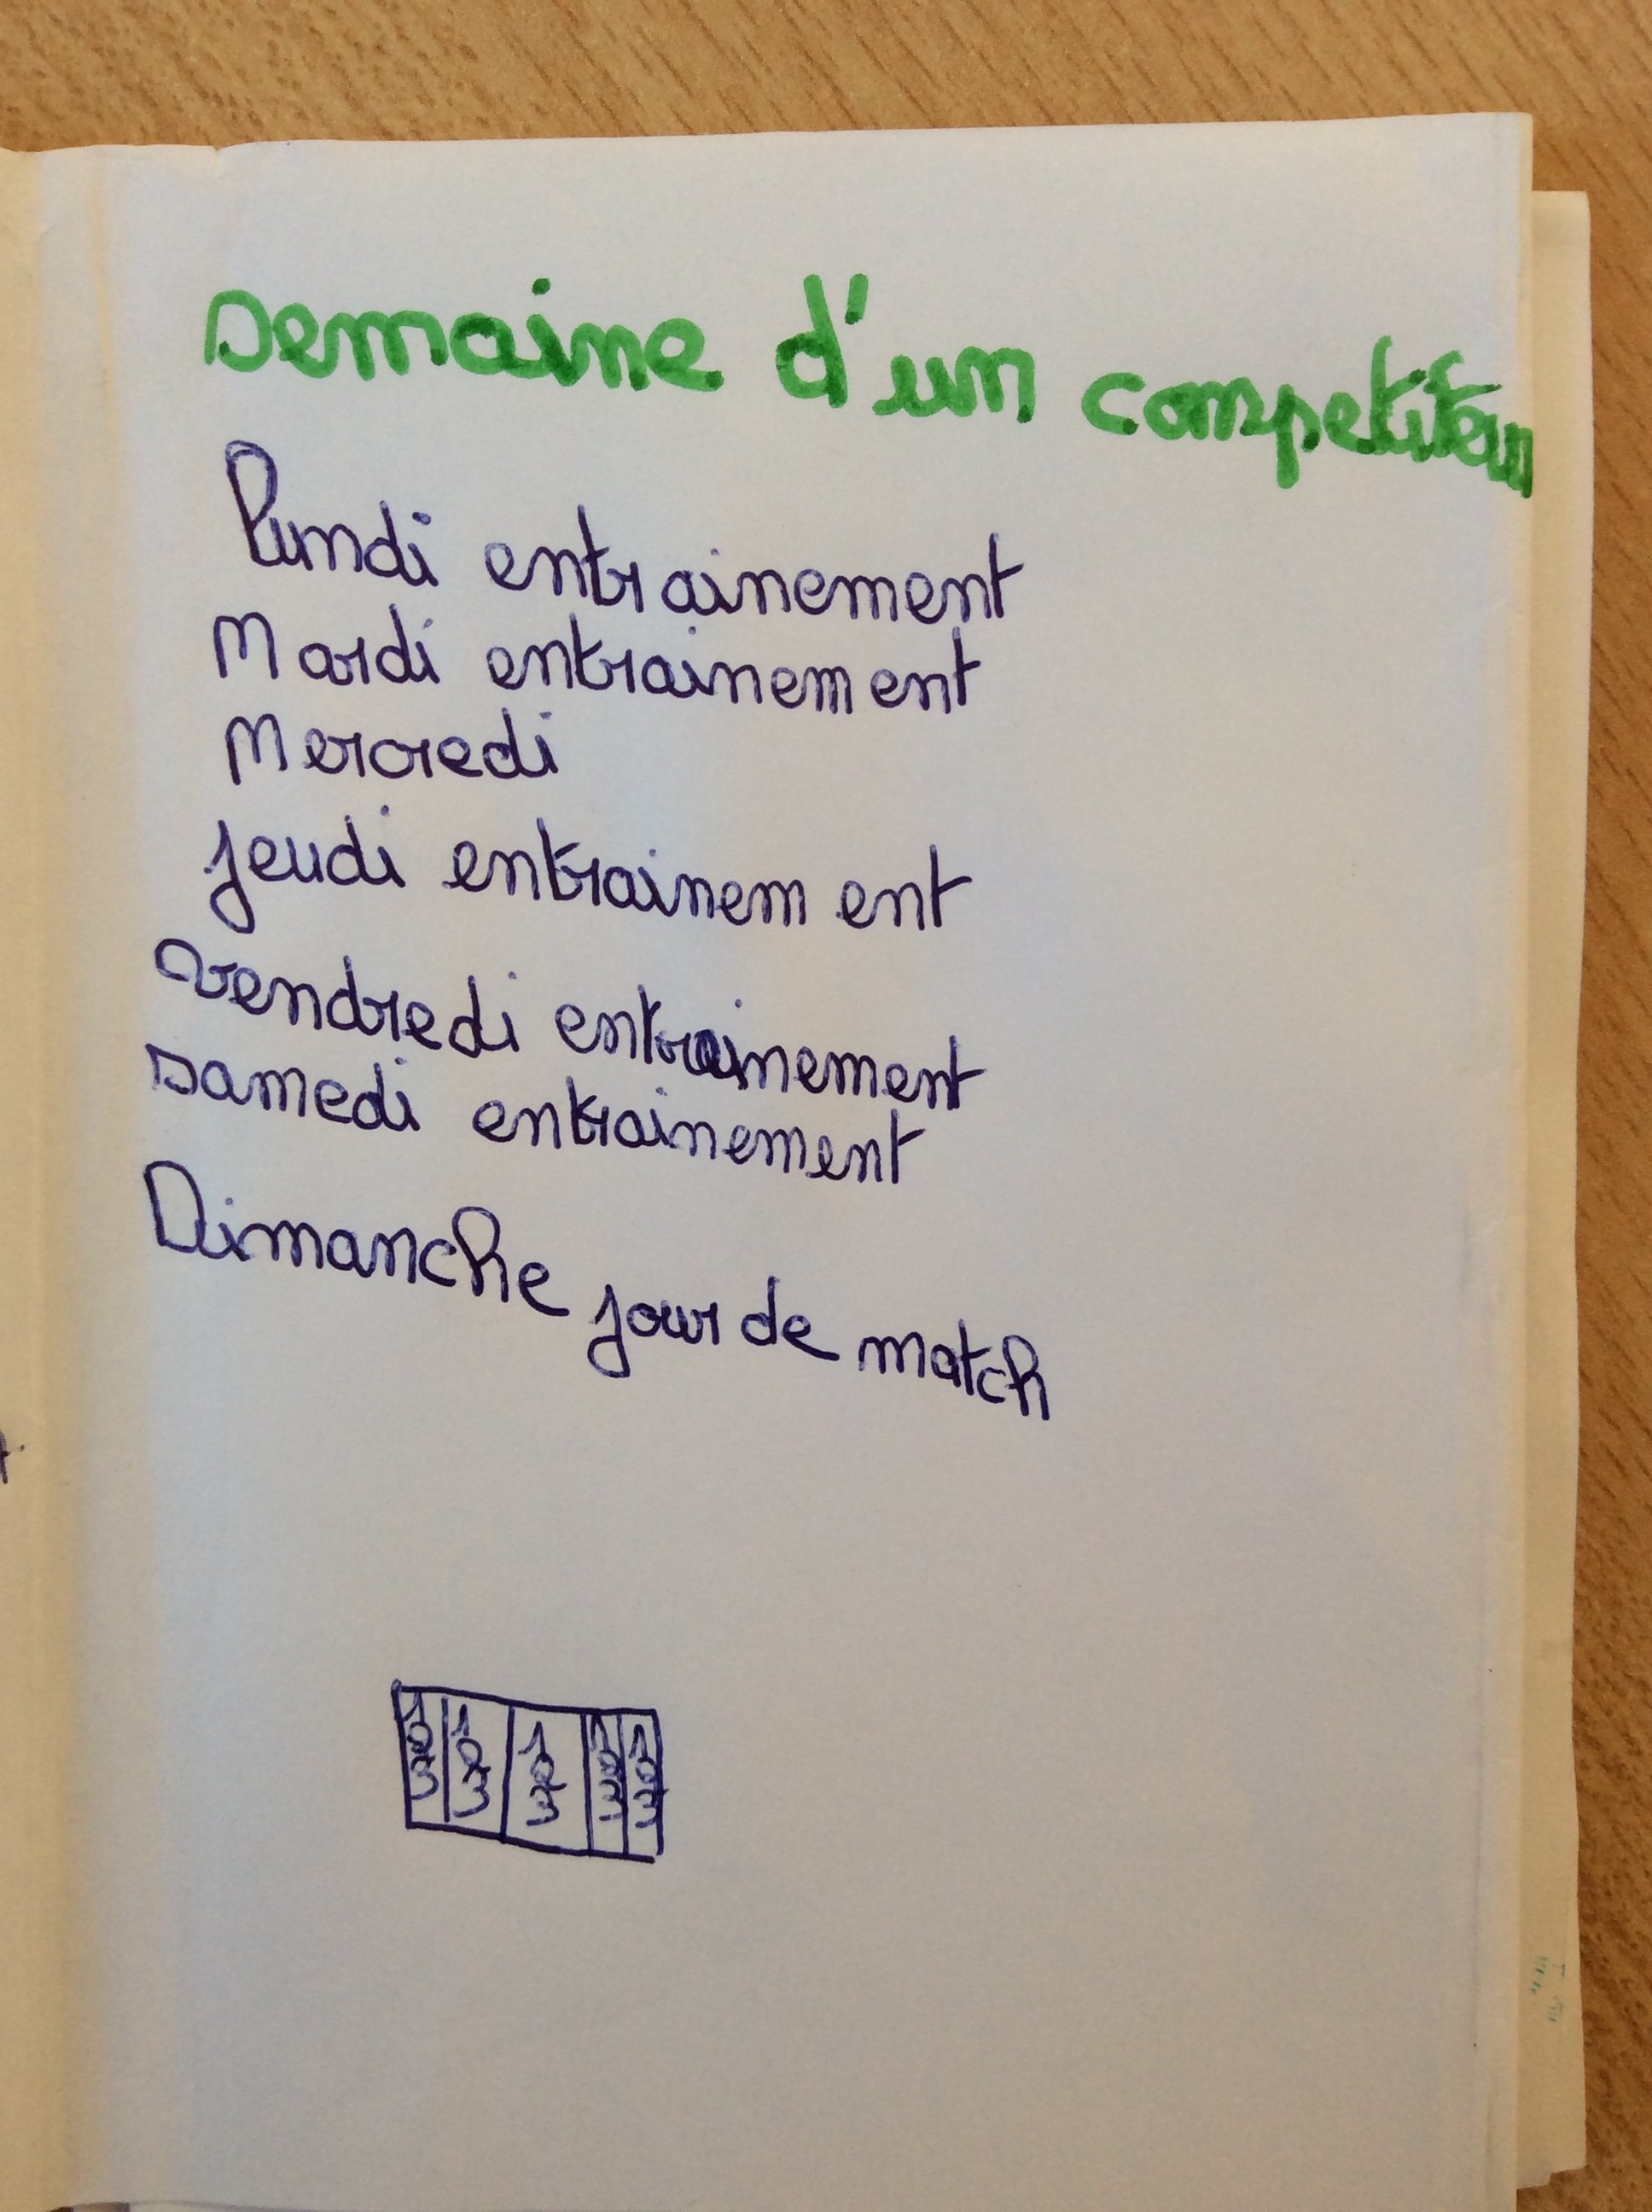 semaine d'un competiteur
lundi entrainement
Mardi entrainement
Mercredi
jeudi entrainement
vendredi entrainement
samedi entrainement
Dimanche jour de match